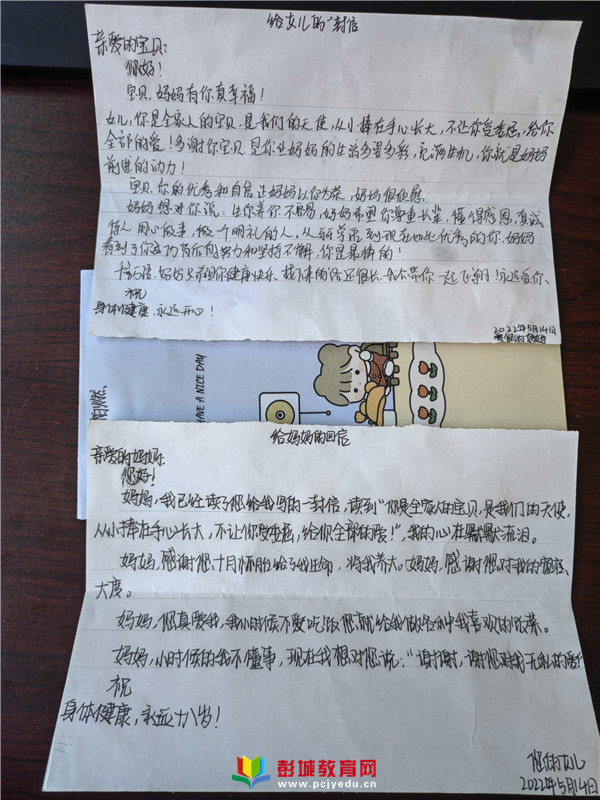 给女儿的一封信
亲爱的宝贝:
你好!
宝贝,妈妈有你真幸福!
女儿,你是全家人的宝贝,是我们的天使,从小捧在手心长大,不让你受委屈,给你
全部的爱!多谢你宝贝,是你让妈妈的生活多姿多彩,充满生机,你就是妈妈
前进的动力!
宝贝,你的优秀和自信让妈妈以你为荣,妈妈很欣慰。
妈妈想对你说:生你养你不容易,妈妈希望你尊重长辈,懂得感恩,真诚
待人,用心做事,做一个明礼的人。从新学期到现在如此优秀的你,妈妈
看到了你成功背后的努力和坚持不懈,你是最棒的!
妈妈只希望你健康快乐。接下来的路还很长,我会带你一起飞翔!永远爱你。
祝
身体健康,永远开心!
2022年5月14日
爱你的妈妈
HAVE A NICE DAY
给妈妈的回信
亲爱的妈妈:
您好!
妈妈,我已经读了您给我写的一封信,读到“你是全家人的宝贝,是我们的天使,
从小捧在手心长大,不让你受委屈,给你全部的爱!”,我的心在默默流泪。
妈妈,感谢您十月怀胎给了我生命,将我养大。妈妈,感谢您对我的包容、
大度。
妈妈,您真爱我,我小时候不爱吃饭,您就给我做各种我喜欢的饭菜。
妈妈,小时候的我不懂事,现在我想对您说:“谢谢,谢谢您对我无私的爱!”
祝
身体健康,永远十八岁!
您的女儿
2022年5月14日
彭城教育网
www.pcjyedu.cn